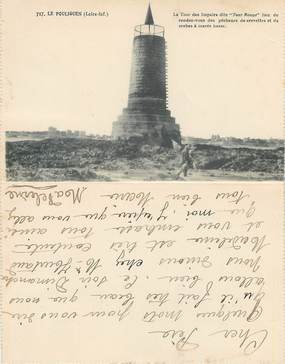 797. LE POULIGUEN (Loire-Inf.)
La Tour des Impairs dite "Tour Rouge" lieu de
rendez-vous des pêcheurs de crevettes et de
crabes à marée basse.
Cher Père
Quelque mots pour vous dire
qu'il fait très beau que nous
allons bien. Le soir Dimanche
Nous dinions chez Mr
Madeleine est très contente
et vous embrasse tous aussi
que moi, j'espère que vous allez
tous bien
Madeleine